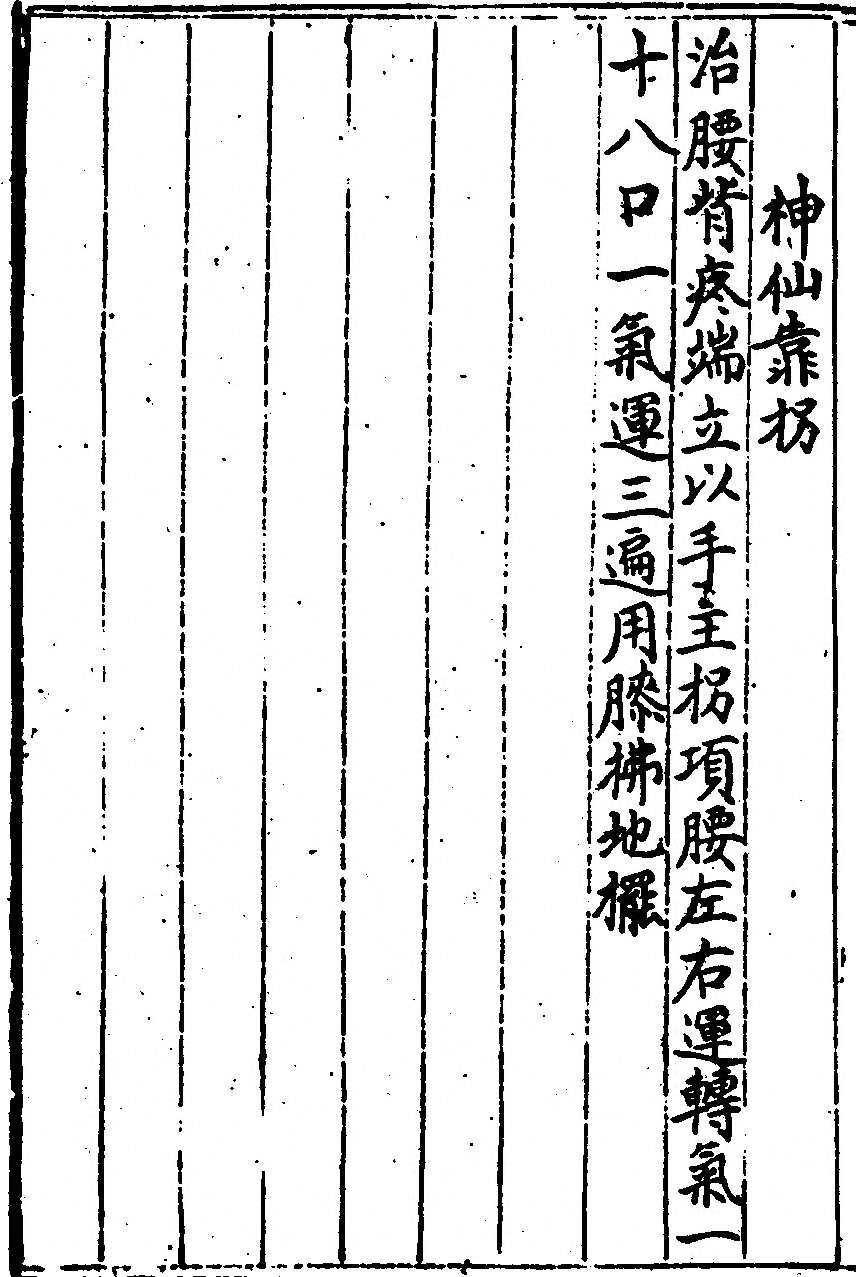 神仙靠拐
治腰背疼端立以手主拐項腰左右運轉氣一
十八口一氣運三遍用膝拂地擺